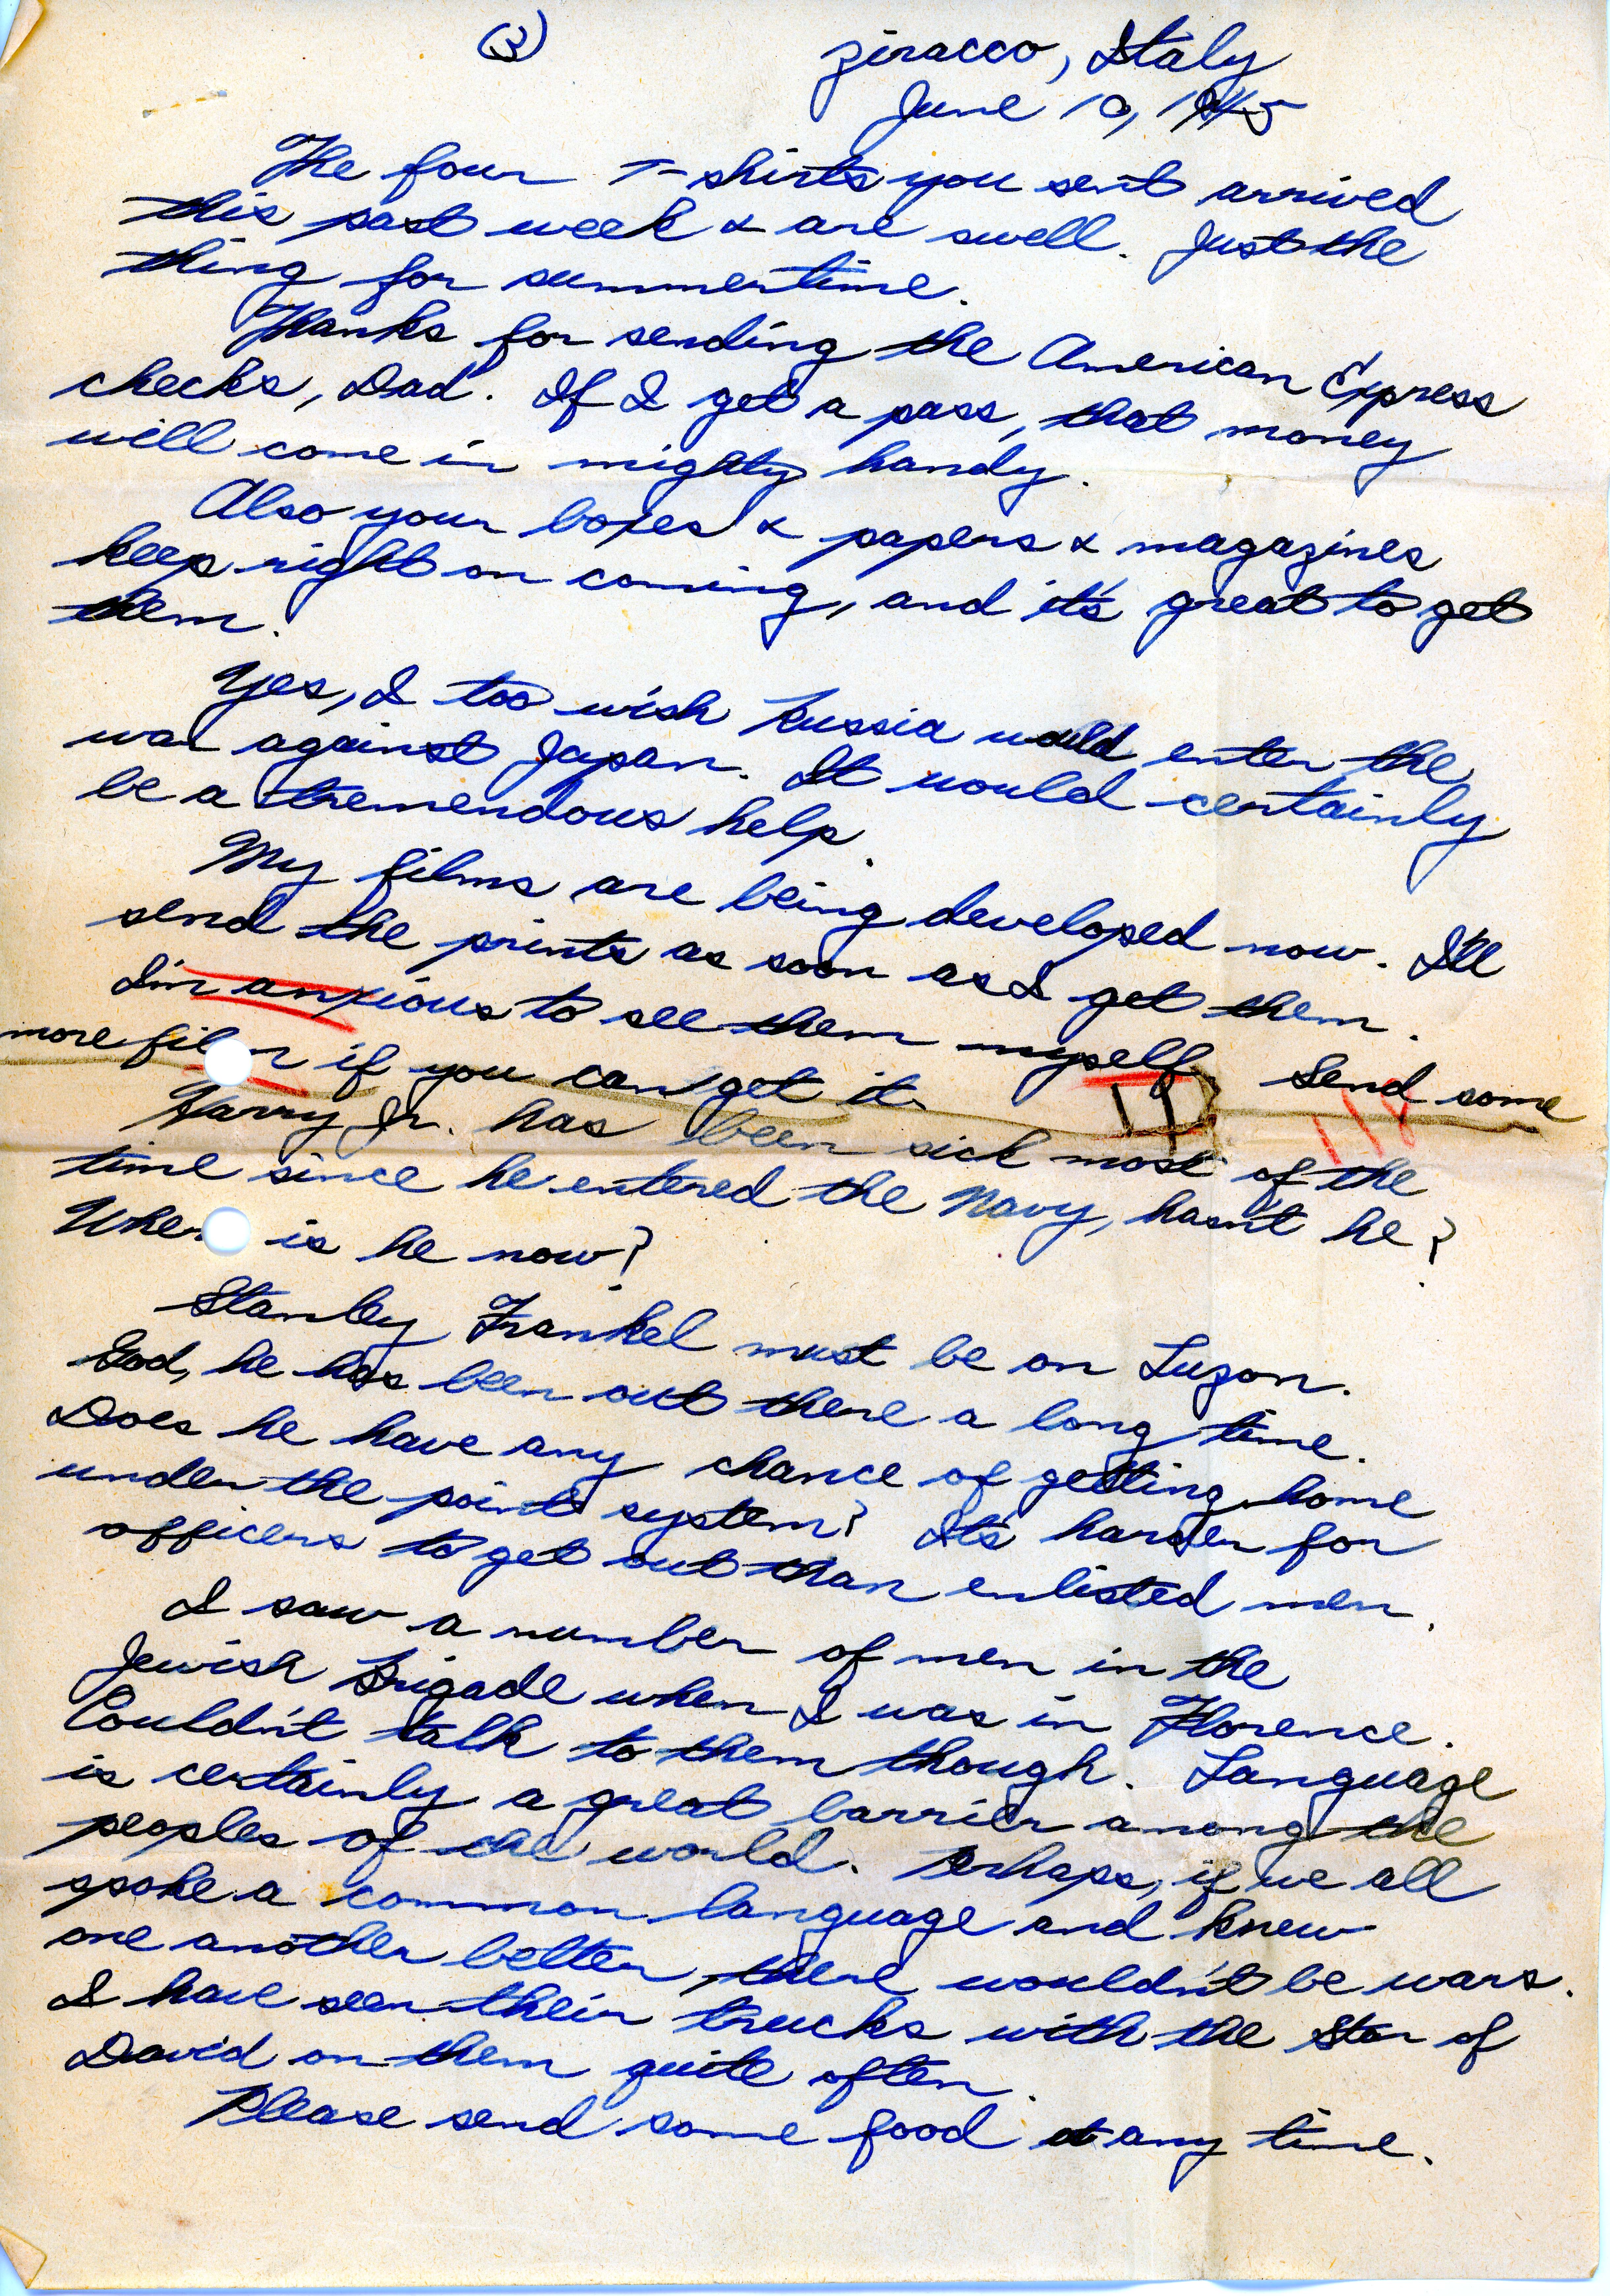 (3)
Ziracco, Italy
June 10, 1945
The four T-shirts you sent arrived
this past week & are swell. Just the
thing for summertime.
Thanks for sending the American Express
checks, Dad. If I get a pass, that money
will come in mighty handy.
Also your boxes & papers & magazines
keep right on coming, and it's great to get
them.
Yes, I too wish Russia would enter the
war against Japan. It would certainly
be a tremendous help.
My films are being developed now. I'll
send the prints as soon as I get them.
I'm anxious to see them myself. Send some
more film if you can get it.
Harry Jr. has been sick most of the
time since he entered the Navy, hasn't he?
Where is he now?
Stanley Frankel must be on Luzon.
God, he has been out there a long time.
Does he have any chance of getting home
under the point system? It's harder for
officers to get out than enlisted men.
I saw a number of men in the
Jewish Brigade when I was in Florence.
Couldn't talk to them though. Language
is certainly a great barrier among the
peoples of the world. Perhaps, if we all
spoke a common language and knew
one another better, there wouldn't be wars.
I have seen their trucks with the Star of
David on them quite often.
Please send some food at any time.